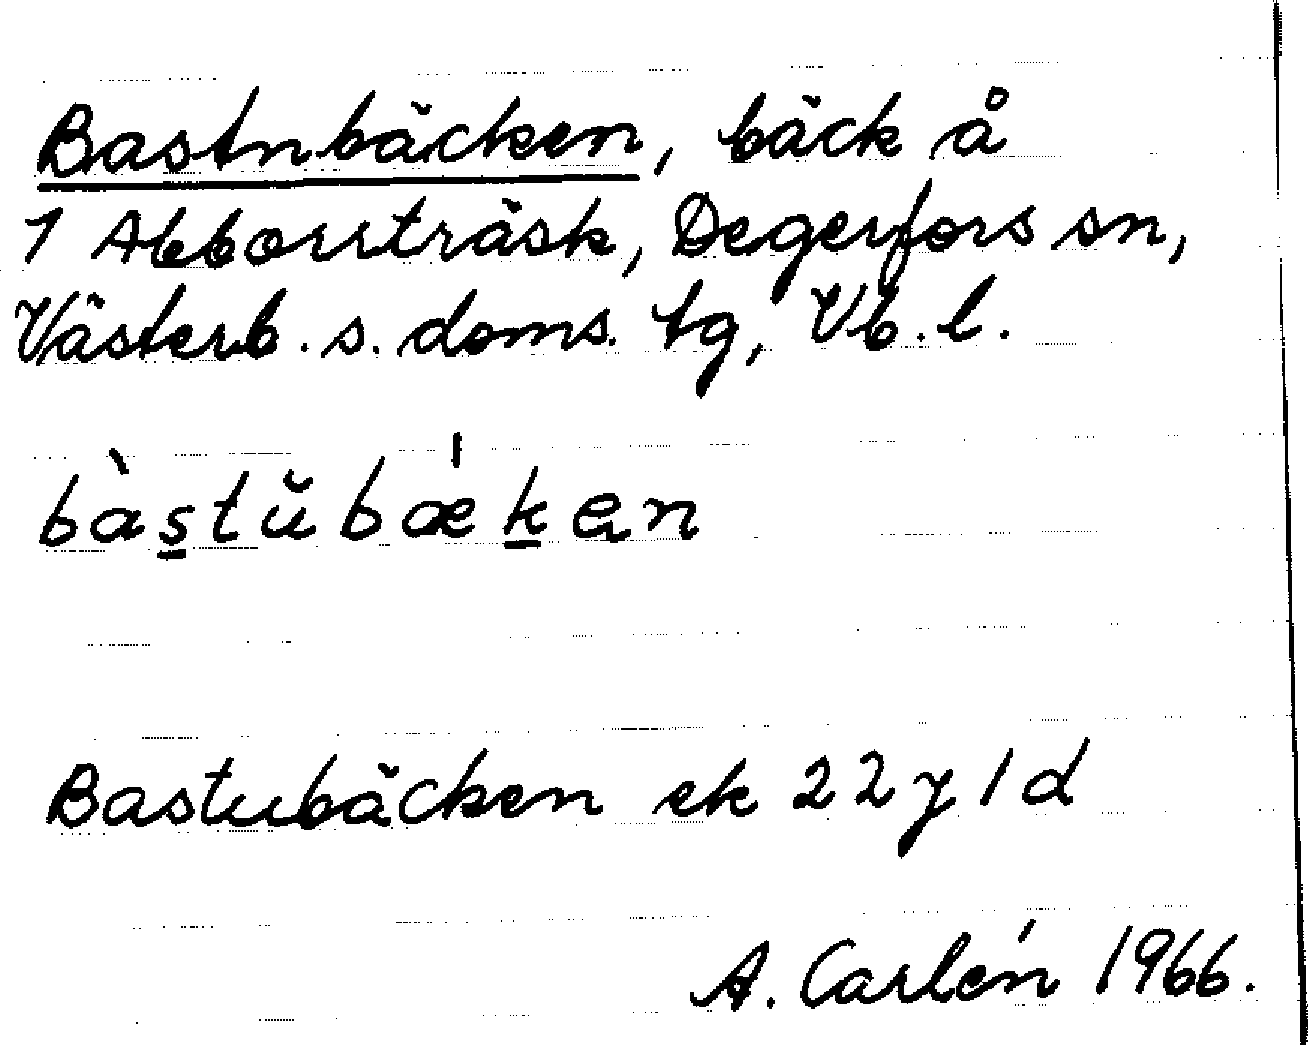 Bastnbäcken, bäck å
1 Abborrträsk, Degerfors sn,
Västerb. s. doms. tg, Vb. l.
bàs̱tŭbǽḵen
Bastubäcken ek 22 y 1 d
A. Carlén 1966.